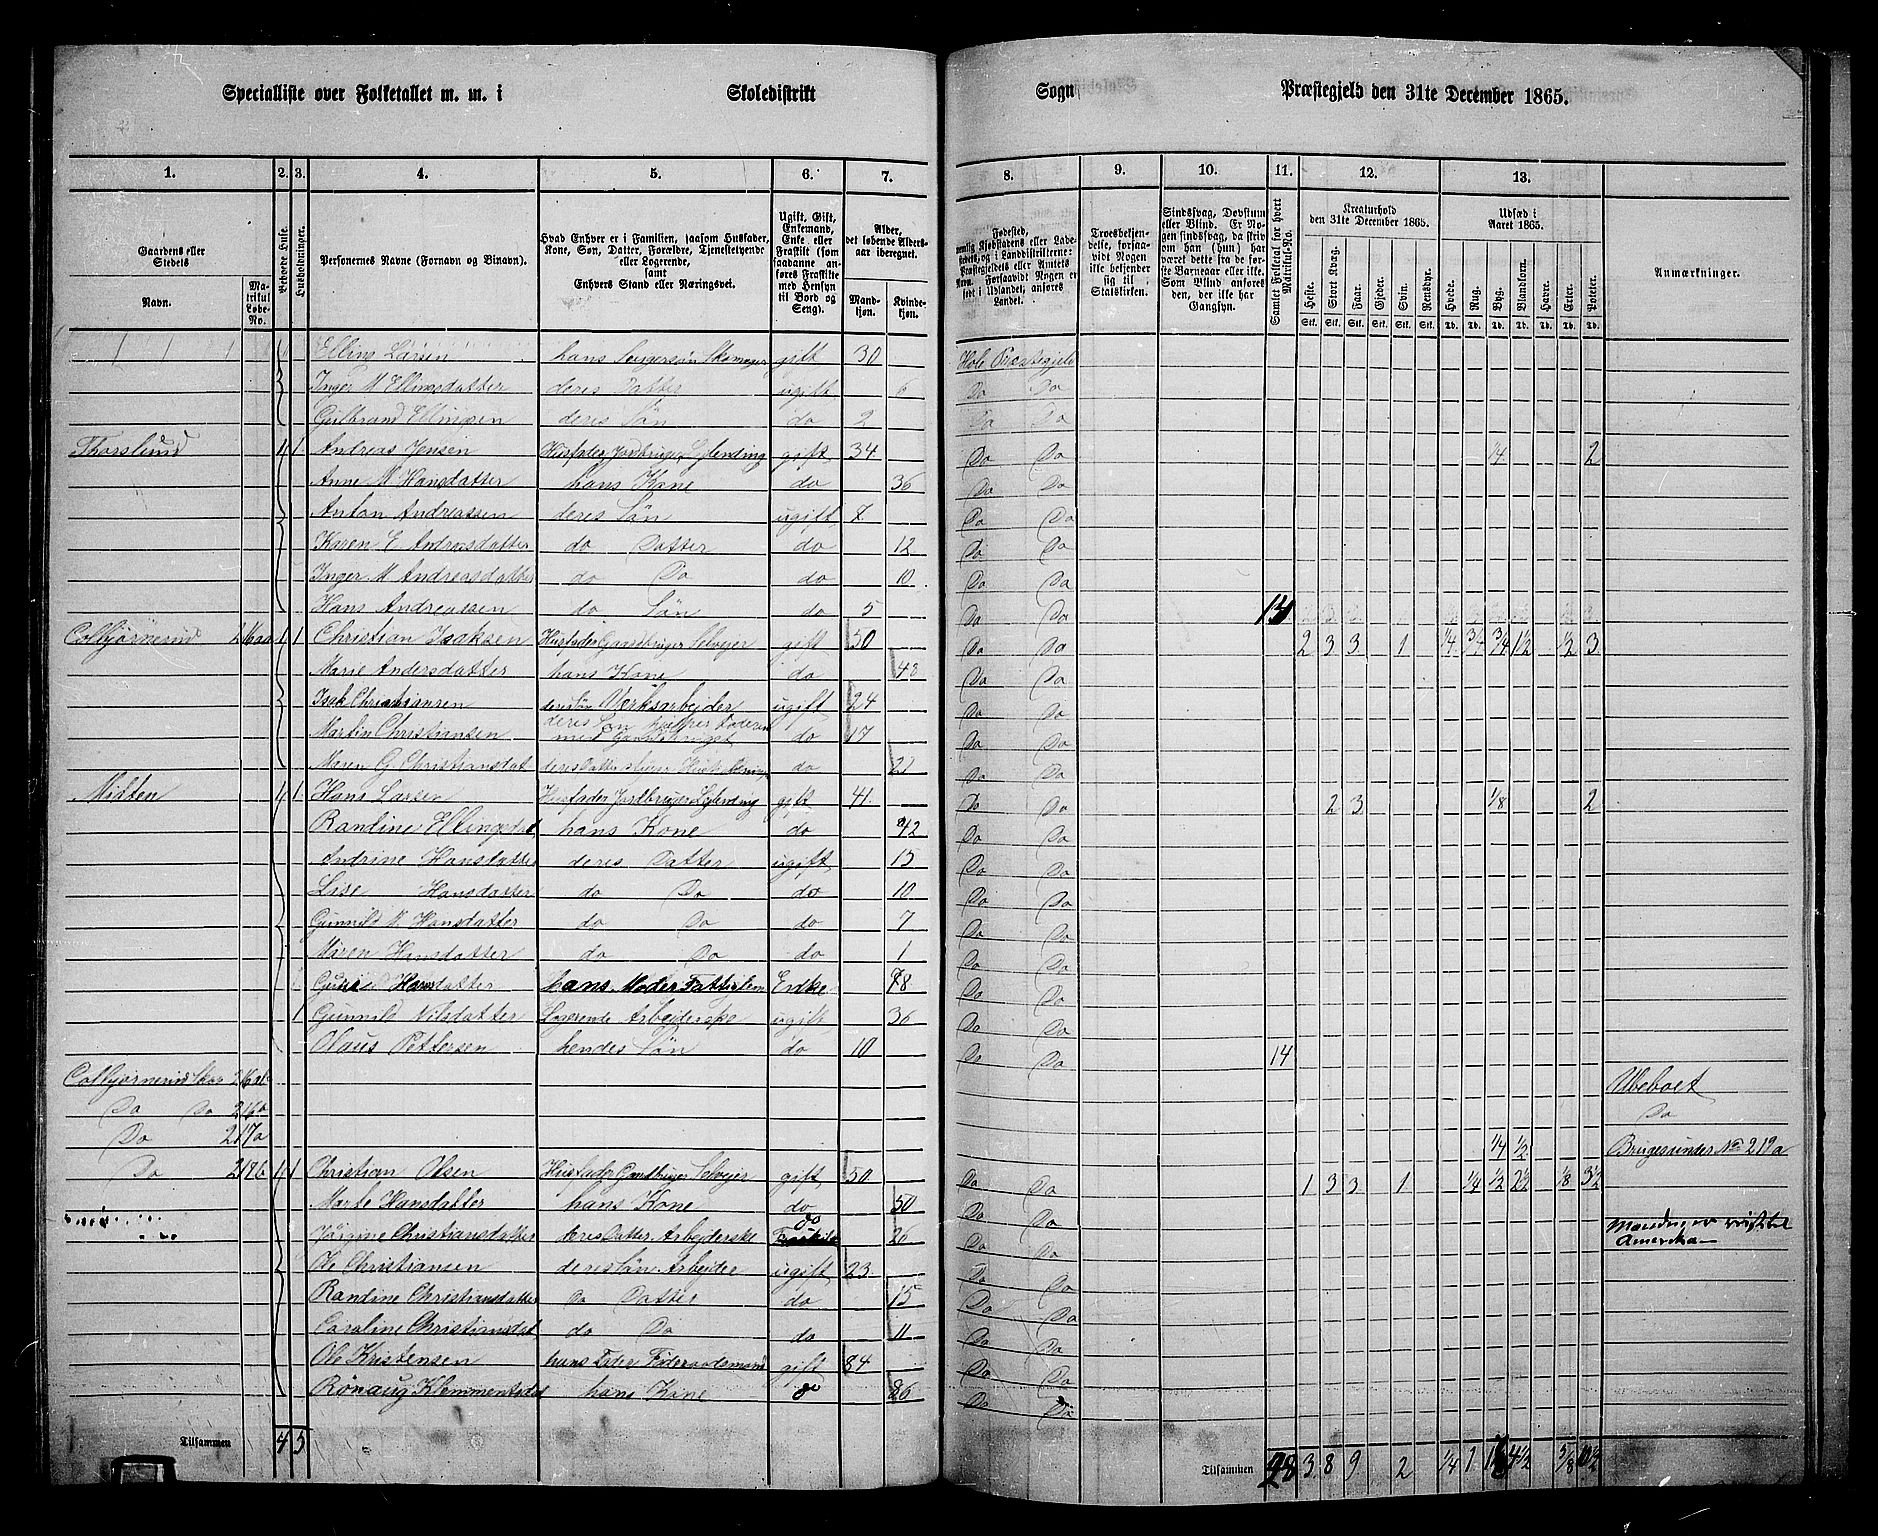 Specialliste over Folketallet m. m. i Skoledistrikt Sogn Præstegjeld den 31te December 1865.
1. 2. 3. 4. 5. 6. 7. 8. 9. 10. 11. 12. 13.
Gaardens eller Stedets
Navn.
Matrikul Løbe-No.
Beboede Huse.
Husholdninger.
Personernes Navne (Fornavn og Binavn).
Hvad Enhver er i Familien, saasom Husfader, Kone, Søn, Datter, Forældre, Tjenestetyende eller Logerende,
samt
Enhvers Stand eller Næringsvei.
Ugift, Gift, Enkemand, Enke eller Fraskilt (som saadanne anføres Fraskilte med Hensyn til Bord og Seng).
Alder, det løbende Alders-aar iberegnet.
Mand-kjøn.
Kvinde-kjøn.
Fødested,
Troesbekjendelse, forsaavidt Nogen ikke bekjender sig til Statskirken.
Sindssvag, Døvstum eller Blind. Er Nogen sindssvag, da skriv om han (hun) har været dette fra de første Barneaar eller ikke. Som Blind anføres den, der ikke har Gangsyn.
Samlet Folketal for hvert Matrikul-No.
Kreaturhold den 31te December 1865.
Heste. Stort Kvæg. Faar. Gjeder. Svin. Rensdyr.
Udsæd i Aaret 1865.
Hvede. Rug. Byg. Blandkorn. Havre. Erter. Poteter.
Anmærkninger.
Elling Larsen hans gift 30 Hole Præstegjeld
Inger M Ellingsdatter deres Datter ugift 6 Do Do
Gulbrand Ellingsen deres Søn do 2 Do Do
Thorslund 1 1 Andreas Jensen Husfader, Jordbruger Leilending gift 34 Do Do 1/4 2
Anne M Hansdatter hans Kone do 36 Do Do
Anton Andreassen deres Søn ugift 7 Do Do
Karen E Andreasdatter do Datter do 12 Do Do
Inger M Andreasdatter do Do do 10 Do Do
Hans Andreassen do Søn do 5 Do Do 13
Colbjørnerud 216aa 1 1 Christian Isaksen Husfader Gaardbruger Selveier gift 50 Do Do 2 3 3 1 1/4 3/4 3/4 1 1/2 1/2 3
Marie Andersdatter hans Kone do 48 Do Do
Isak Christiansen deres Søn Værksarbejder ugift 24 Do Do
Martin Christiansen deres Søn hjelper Faderen med Gaardsbruget do 17 Do Do
Maren G. Christiansdat deres Datter do 21 Do Do
Midten 1 1 Hans Larsen Husfader Jordbruger Leilending gift 41 Do Do 2 3 1/8 2
Randine Ellingsdat hans Kone do 42 Do Do
Andrine Hansdatter deres Datter ugift 15 Do Do
Lise Hansdatter do Do do 10 Do Do
Gunnild Hansdatter do Do do 7 Do Do
Maren Hansdatter do Do do 1 Do Do
Hansdatter hans Moder Fattiglem Enke 78 Do Do
1 Gunnild Nilsdatter Logerende Arbejderske ugift 36 Do Do
Olaus Pettersen hendes Søn do 10 Do Do 14
Colbjørnerud Skov 216ab Ubeboet
Do Do 216b Do
Do 217a 1/4 1/2 Bruges under No 219a
Do 218b 1 1 Christian Olsen Husfader Gaardbruger Selveier gift 50 Do Do 1 3 3 1 1/4 1/2 2 1/2 1/8 3 1/2
Marte Hansdatter hans Kone do 50 Do Do
Jørgine Christiansdatter deres Datter. Arbejderske do 26 Do Do Manden er reist til Amerika
Ole Christiansen deres Søn. Arbejder ugift 23 Do Do
Randine Christiansdatter Do Datter do 15 Do Do
Caroline Christiansdat do Do do 11 Do Do
Ole Kristensen hans Fader Føderaadsmand gift 84 Do Do
Rønaug Klemmentsdat hans Kone do 86 Do Do
Tilsammen 4 5 Tilsammen 28 3 8 9 2 1/4 1 4 1/2 5/8 10 1/2